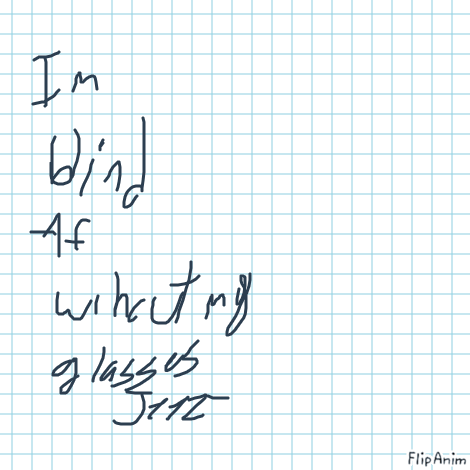 Im
blind
Af
wihout my
glasses
Jerr
FlipAnim